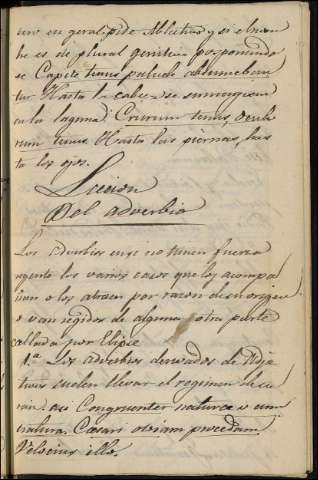 en geral pide Ablativo, y si el nom
bre es de plural genitivo posponiendo
se Capite tenus palude abluuntur
Hasta la cabeza se sumergieron
en la laguna. Crurum tenus,
tenus. Hasta las piernas, has
ta los ojos.
Leccion
Del adverbio
Los adverbios no tienen fuerza
regente los varios casos que los acompa
ñan o los atraen por razon de su origen
o van regidos de alguna otra parte
callada por Elipse
1.ª Los adverbios derivados de Adje
tivos suelen llevar el regimen de su
Congruenter naturae
Caesari obviam
Velocius illo.